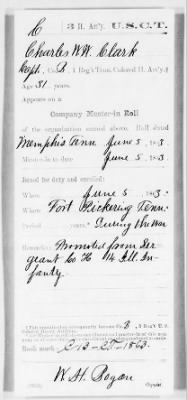 C 3 H. Art'y. U.S.C.T.
Charles W W. Clark
Capt., Co. B, 1 Reg't Tenn. Colored H. Art'y.
Age 31 years.
Appears on a
Company Muster-in Roll
of the organization named above. Roll dated
Memphis Tenn June 5, 1863.
Muster-in to date June 5, 1863.
Joined for duty and enrolled:
When June 5, 1863.
Where Fort Pickering Tenn.
Period years. During the war
Remarks: Promoted from Ser
geant Co 14 Ill In-
fantry.
Book mark:
W. H. Bogan
Copyist.